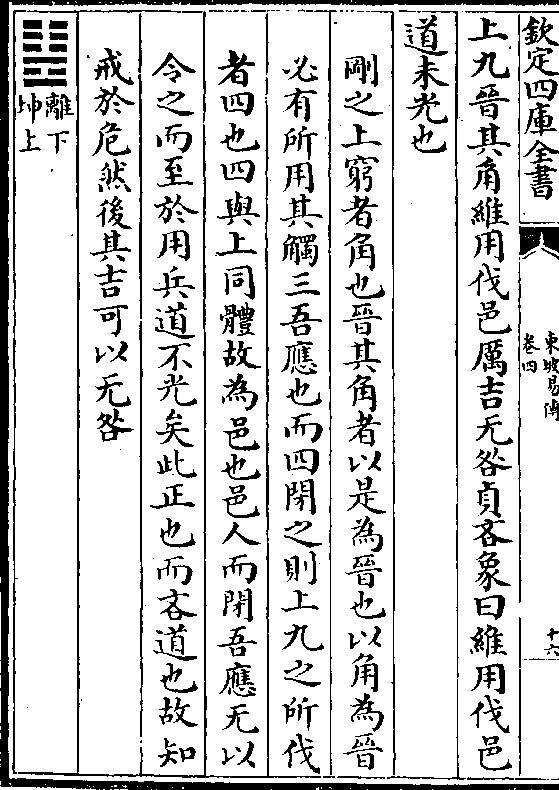 欽定四庫全書
東坡易傳
卷四
十六
上九晉其角維用伐邑厲吉无咎貞吝象曰維用伐邑
道未光也
剛之上窮者角也晉其角者以是為晉也以角為晉
必有所用其觸三吾應也而四閉之則上九之所伐
者四也四與上同體故為邑也邑人而閉吾應无以
令之而至於用兵道不光矣此正也而吝道也故知
戒於危然後其吉可以无咎
䷣離下
坤上